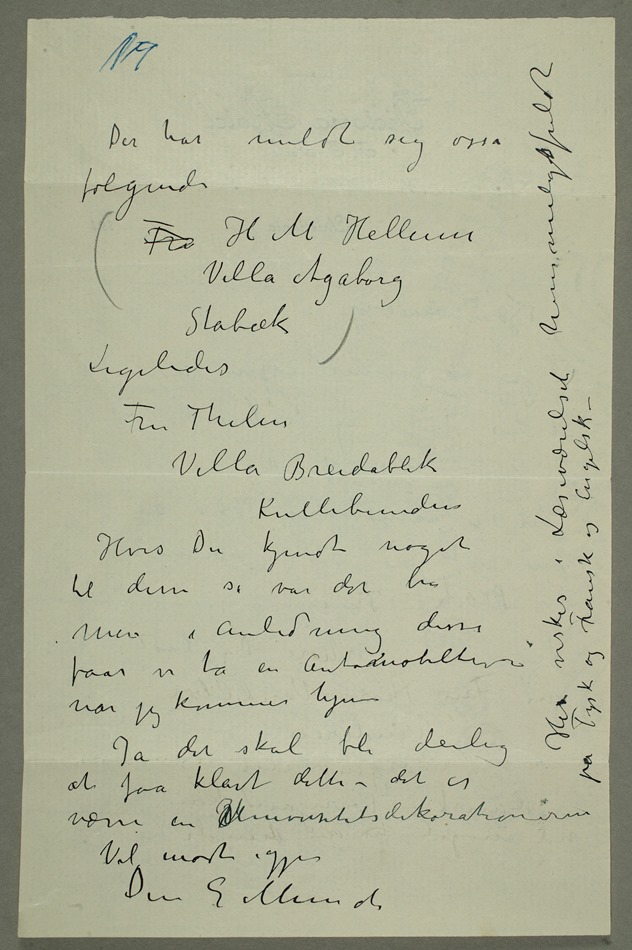 Der har meldt sig ossa
følgende
Fru H M Hellum
Villa Agaborg
Stabæk
Ligeledes
Fru Thelen
Villa Breidablik
Kullebunden
Hvis Du kjendte noget
til dem så var det bra
Men i anledning disse
faar vi ta en Automobiltur
når jeg kommer hjem
Ja det skal bli deilig
at faa klart dette – det er
værre en Universitetsdekorationerne
Vel mødt igjen
Din E Munch
Her ønskes i Læseværelset
på Tysk og Fransk og Engelsk –